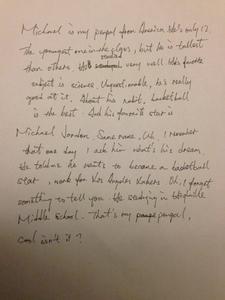 Michael is my penpal from America. He's only 12.
The youngest one in the class, but he is tallest
than others. He studied very well. His favorite
subject is science. Unquestionable, he's really
good at it. About his habit, basketball
is the best. And his favorite star is
Michael Jordon. Same name, Uh. I remember
that one day I ask him what's his dream.
He told me he wants to become a basketball
star, work for Los Angeles Lakers. Oh, I forget
something to tell you. He studying in
Middle School. That's my penpal,
cool isn't it?